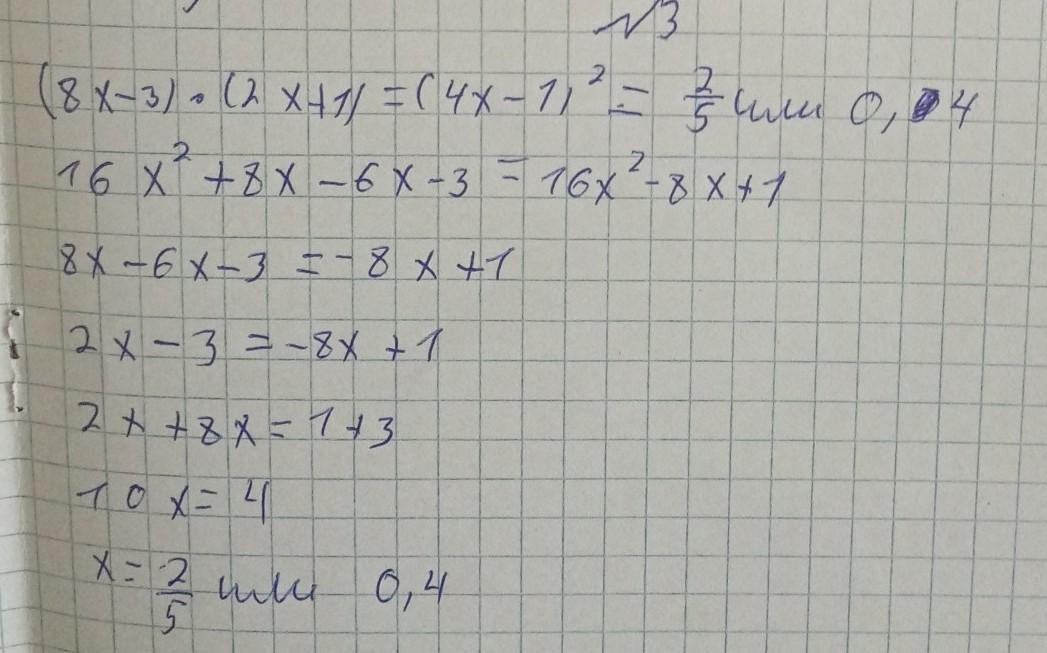 №3
(8x-3)·(2x+1)=(4x-1)²= 2/5 или 0,4
16x²+8x-6x-3=16x²-8x+1
8x-6x-3=-8x+1
2x-3=-8x+1
2x+8x=1+3
10x=4
x=2/5 или 0,4